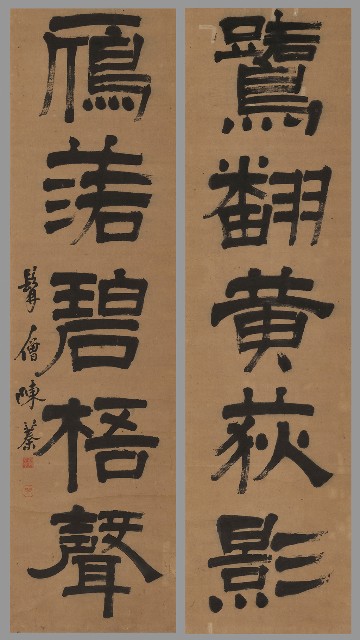 鷺翻黃荻影
鴈落碧梧聲
髯僧陳蓁